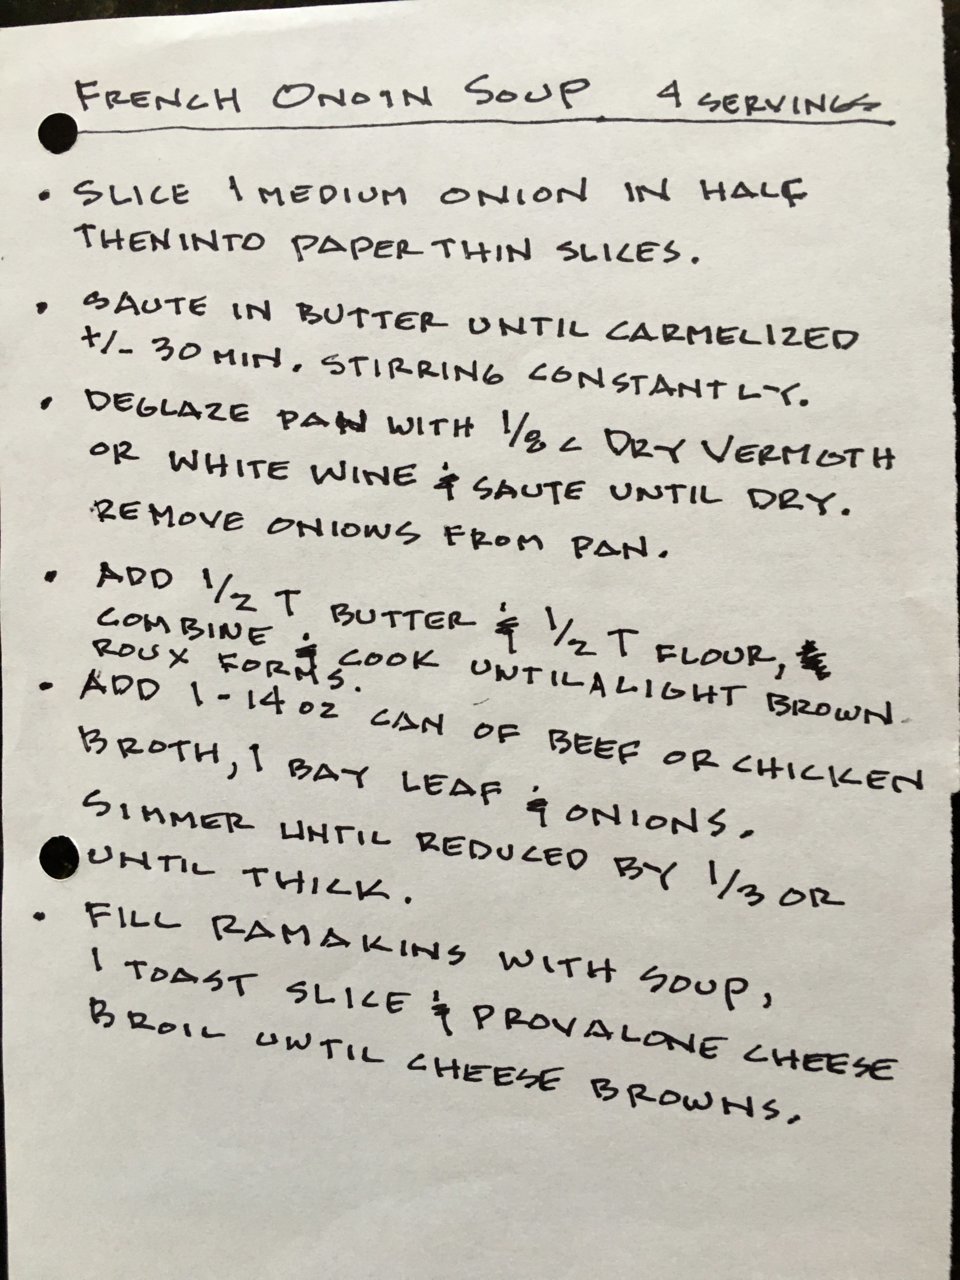 FRENCH ONOIN SOUP 4 SERVINGS
• SLICE 1 MEDIUM ONION IN HALF
THEN INTO PAPER THIN SLICES.
• SAUTE IN BUTTER UNTIL CARMELIZED
+/- 30 MIN. STIRRING CONSTANTLY.
• DEGLAZE PAN WITH 1/8 C DRY VERMOTH
OR WHITE WINE & SAUTE UNTIL DRY.
REMOVE ONIONS FROM PAN.
• ADD 1/2 T BUTTER & 1/2 T FLOUR,
COMBINE & COOK UNTIL A LIGHT BROWN
ROUX FORMS.
• ADD 1-14 OZ CAN OF BEEF OR CHICKEN
BROTH, 1 BAY LEAF & ONIONS.
SIMMER UNTIL REDUCED BY 1/3 OR
UNTIL THICK.
• FILL RAMAKINS WITH SOUP,
1 TOAST SLICE & PROVALONE CHEESE
BROIL UNTIL CHEESE BROWNS.